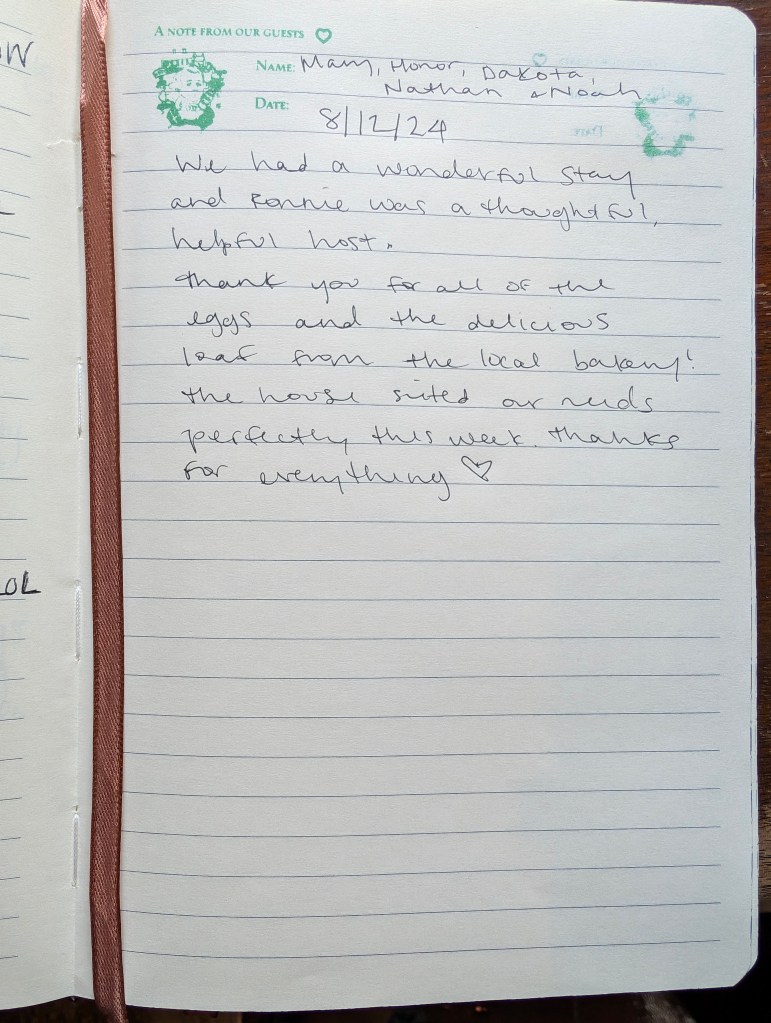 A NOTE FROM OUR GUESTS ♡
NAME: Mary, Honor, Dakota,
Nathan & Noah
DATE: 8/12/24
We had a wonderful stay
and Ronnie was a thoughtful,
helpful host.
Thank you for all of the
eggs and the delicious
loaf from the local bakery!
The house suited our needs
perfectly this week. Thanks
for everything ♡
OL